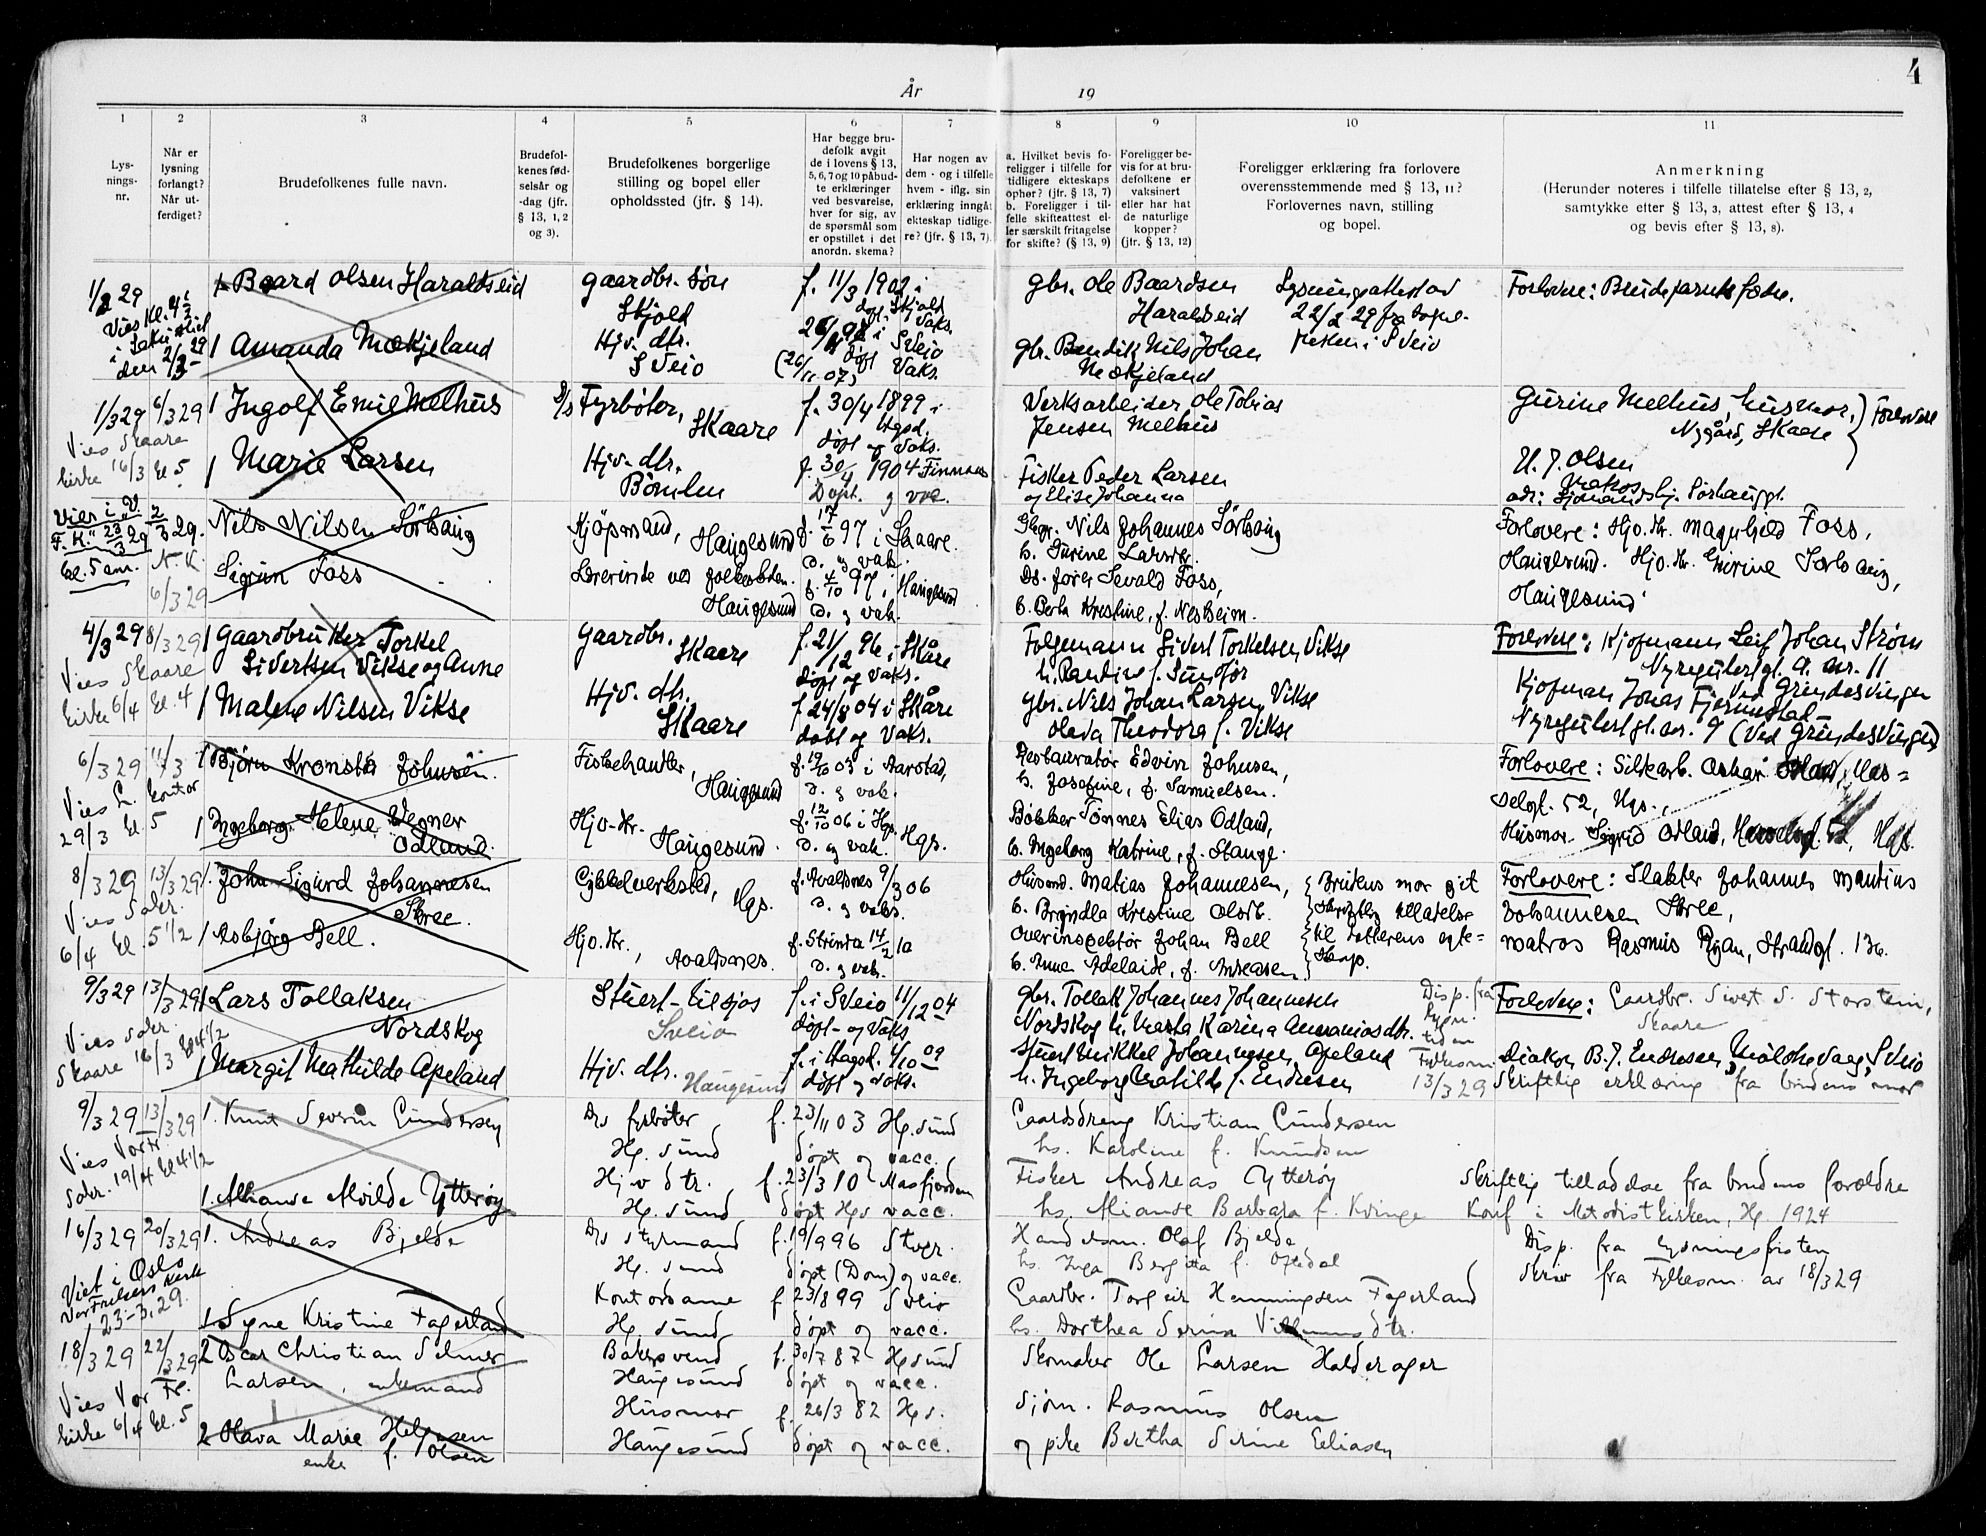 4
År
19
1
2
3
4
5
6
7
8
9
10
11
Lys-
nings-
nr.
Når er
lysning
forlangt?
Når ut-
ferdiget?
Brudefolkenes fulle navn.
Brudefol-
kenes fød-
selsår og
-dag (jfr.
§ 13, 1, 2
og 3).
Brudefolkenes borgerlige
stilling og bopel eller
opholdssted (jfr. § 14).
Har begge bru-
defolk avgit
de i lovens § 13,
5, 6, 7 og 10 påbud-
te erklæringer
ved besvarelse,
hver for sig, av
de spørsmål som
er opstillet i det
anordn. skema?
Har nogen av
dem - og i tilfelle
hvem - iflg. sin
erklæring inngåt
ekteskap tidlige-
re? (jfr. § 13, 7).
a. Hvilket bevis fo-
religger i tilfelle for
tidligere ekteskaps
ophør? (jfr. § 13, 7)
b. Foreligger i til-
felle skifteattest el-
ler særskilt fritagelse
for skifte? (§ 13, 9)
Foreligger be-
vis for at bru-
defolkene er
vaksinert
eller har hat
de naturlige
kopper?
(jfr. § 13, 12)
Foreligger erklæring fra forlovere
overensstemmende med § 13, 11?
Forlovernes navn, stilling
og bopel.
Anmerkning
(Herunder noteres i tilfelle tillatelse efter § 13, 2,
samtykke efter § 13, 3, attest efter § 13, 4
og bevis efter § 13, 8).
1/2 29
Vies Kl. 4½
den 2/3
1 Baard Olsen Haraldseid
1 Amanda Mækjeland
gaardbr. søn
Skjold
Hjv. dtr.
Sveio
f. 11/3 1902 i
Skjold
Vaks.
i Sveio
døpt Vaks.
(26/11 07)
gbr. Ole Baardsen
Haraldseid
gbr. Bendik Nils Johan
Mækjeland
Lysningsattest av
22/2 29 fra
i Sveio
Forlovere: Brudeparrets fedre.
1/3 29 6/3 29
Vies Skaare
kirke 16/3 kl. 5
1 Ingolf Emil Melhus
1 Marie Larsen
D/s Fyrbøter,
Skaare
Hjv. dtr.
Bömlen
f. 30/4 1899 i
Hgsd.
døpt og Vaks.
f. 30/4 1904 Finnaas
Døpt. og vac.
Verksarbeider Ole Tobias
Jensen Melhus
Fisker Peder Larsen
og Elise Johanna
Gurine Melhus, husmor, } Forlovere
Nygård, Skaare
U. J. Olsen
adr: Sjømandshj. Sørhauggt.
Vies i "V.
F. K." 23/3 29
kl. 5 em.
2/3 29.
N. K.
6/3 29
Nils Nilsen Sörhaug
Sigrun Foss
Kjöpmand, Haugesund
Lærerinde ved folkeskolen.
Haugesund
f. 17/6 97 i Skaare.
d. og vak.
f. 4/10 97 i Haugesund
d. og vak.
Gbgr. Nils Johannes Sörhaug
h. Gurine Larsdtr.
Ds. fører Sevald Foss,
h. Berta Kristine, f. Nesheim.
Forlovere: Hjv. dtr. Magnhild Foss,
Haugesund. Hjv. dtr. Gurine Sörhaug,
Haugesund
4/3 29 8/3 29
Vies Skaare
kirke 6/4 kl. 4
1 Gaardbruker Torkel
Sivertsen Vikse og Anne
1 Malene Nilsen Vikse
Gaardbr.
Skaare
Hjv. dtr.
Skaare
f. 21/12 96 i Skåre
døpt og vaks.
f. 24/8 04 i Skåre
døbt og Vaks.
Følgemann Sivert Torkelsen Vikse
h. Randine f. Sundfør
gbr. Nils Johan Larsen Vikse
Oleva Theodora f. Vikse
Forlovere: Kjøpmann Leif Johan Strøm
Nyregulert gt. a. nr. 11
Ved Grindesvingen
Kjøpman Jonas Fjermestad
Nyregulert gt. nr. 9 (Ved Grindesvingen)
6/3 29 11/3
Vies L. kontor
29/3 kl. 5
1 Björn Kronstø Johnsen.
1 Ingeborg Helene Wegner
Ødland.
Fiskehandler,
Haugesund
Hjv. dtr.
Haugesund.
f. 19/10 03 i Aarstad,
d. og vak.
f. 12/10 06 i Hgs. Hgs.
d. og vak.
Restauratør Edvin Johnsen,
h. Josefine, f. Samuelsen.
Bøkker Tønnes Elias Ødland,
h. Ingeborg Katrine, f. Stange.
Forlovere: Sildearb. Oskar
selgt. 52, Hgs.,
Husmor Sigrid Ødland, Hgs.
8/3 29 13/3 29
Vies Sakr.
6/4 kl. 5 1/2
1. John Sigurd Johannesen
Stree.
1 Asbjørg Bell.
Cykkelverksted, Hgs.
Hjv. dtr., Avaldsnes.
f. Avaldsnes 9/3 06
d. og vaks.
f. Strinda 14/2 10
d. og vak.
Husmd. Matias Johannesen,
h. Bryndla Kristine Olsdtr.
Overinspektør Johan Bell
h. Anne Adelaide, f. Andreasen
Brudens mor git
skriftlig tillatelse
til datterens egte-
skap.
Forlovere: Slakter Johannes Mandius
Johannesen Stree,
matros Rasmus Ryan, Strandgt. 136.
9/3 29 13/3 29
Vies Sakr.
Skaare 16/3 kl 4 1/2
1 Lars Tollaksen
Nordskog
1 Margit Mathilde Apeland
Stuert-Eilsjos
Sveio
Hjv. dtr. Haugesund
f. i Sveio 11/12 04
døpt og Vaks
f. i Hagsd. 4/10 09
døpt og Vaks.
gbr. Tollak Johannes Johannesen
Nordskog h. Marta Karina Ananiasdtr.
Stuert Mikkel Johannesen Apeland
h. Ingeborg Matilde f. Endresen
Disp. fra
lysn.
tiden
Fylkesm.
13/3 29
Forlovere: Gaardbr. Sivert S. Storstein,
Skaare
Diakon B. J. Endresen, Mölstrevaag, Sveio
Skriftlig erklæring fra brudens mor
9/3 29 13/3 29
Vies Vor Fr.
Sakr. 19/4 kl 4 1/2
1. Knut Severin Gundersen
1. Alhanse Alvilde Ytterøy
D/s fyrbøter
Hg. sund
Hjv dtr.
Hg. sund
f. 23/11 03 Hg. sund
døpt og vacc.
f. 23/3 10 Masfjorden
døpt Hgs vacc.
Gaardsdreng Kristian Gundersen
hs. Karoline f. Knudsen
Fisker Andreas Ytterøy
hs. Alianse Barbara f. Kvinge
Skriftlig tilladelse fra brudens forældre
Konf i Metodistkirken, Hg. 1924
16/3 29 20/3 29
Viet i Oslo
Vor Frelsers Kirke
23-3. 29.
1. Andreas Bjelde
1 Syne Kristine Fagerland
D/s styrmand
Hg. sund
Kontordame
Hg. sund
f. 19/9 96 Stvgr.
døpt (Dom) og vacc.
f. 23/8 99 Sveio
døpt og vacc.
Handelsm. Olaf Bjelde
hs. Inga Bergitta f. Oftedal
Gaardbr. Torgeir Henningsen Fagerland
hs. Dorthea Serina dtr.
Disp. fra lysningsfristen
Skriv fra Fylkesm. av 18/3 29
18/3 29 22/3 29
Vies Vor Fr.
kirke 6/4 kl. 5
2 Oscar Christian Selmer
Larsen, enkemand
2 Olava Marie Helgesen
enke f. Olsen
Bakersvend
Haugesund
Husmor
Haugesund
f. 30/7 87 Hg sund
døpt og vacc.
f. 26/3 82 Hgs.
døpt og vacc.
Skomaker Ole Larsen Halderager
Sjøm. Rasmus Olsen
og pike Bertha Serine Eliasen